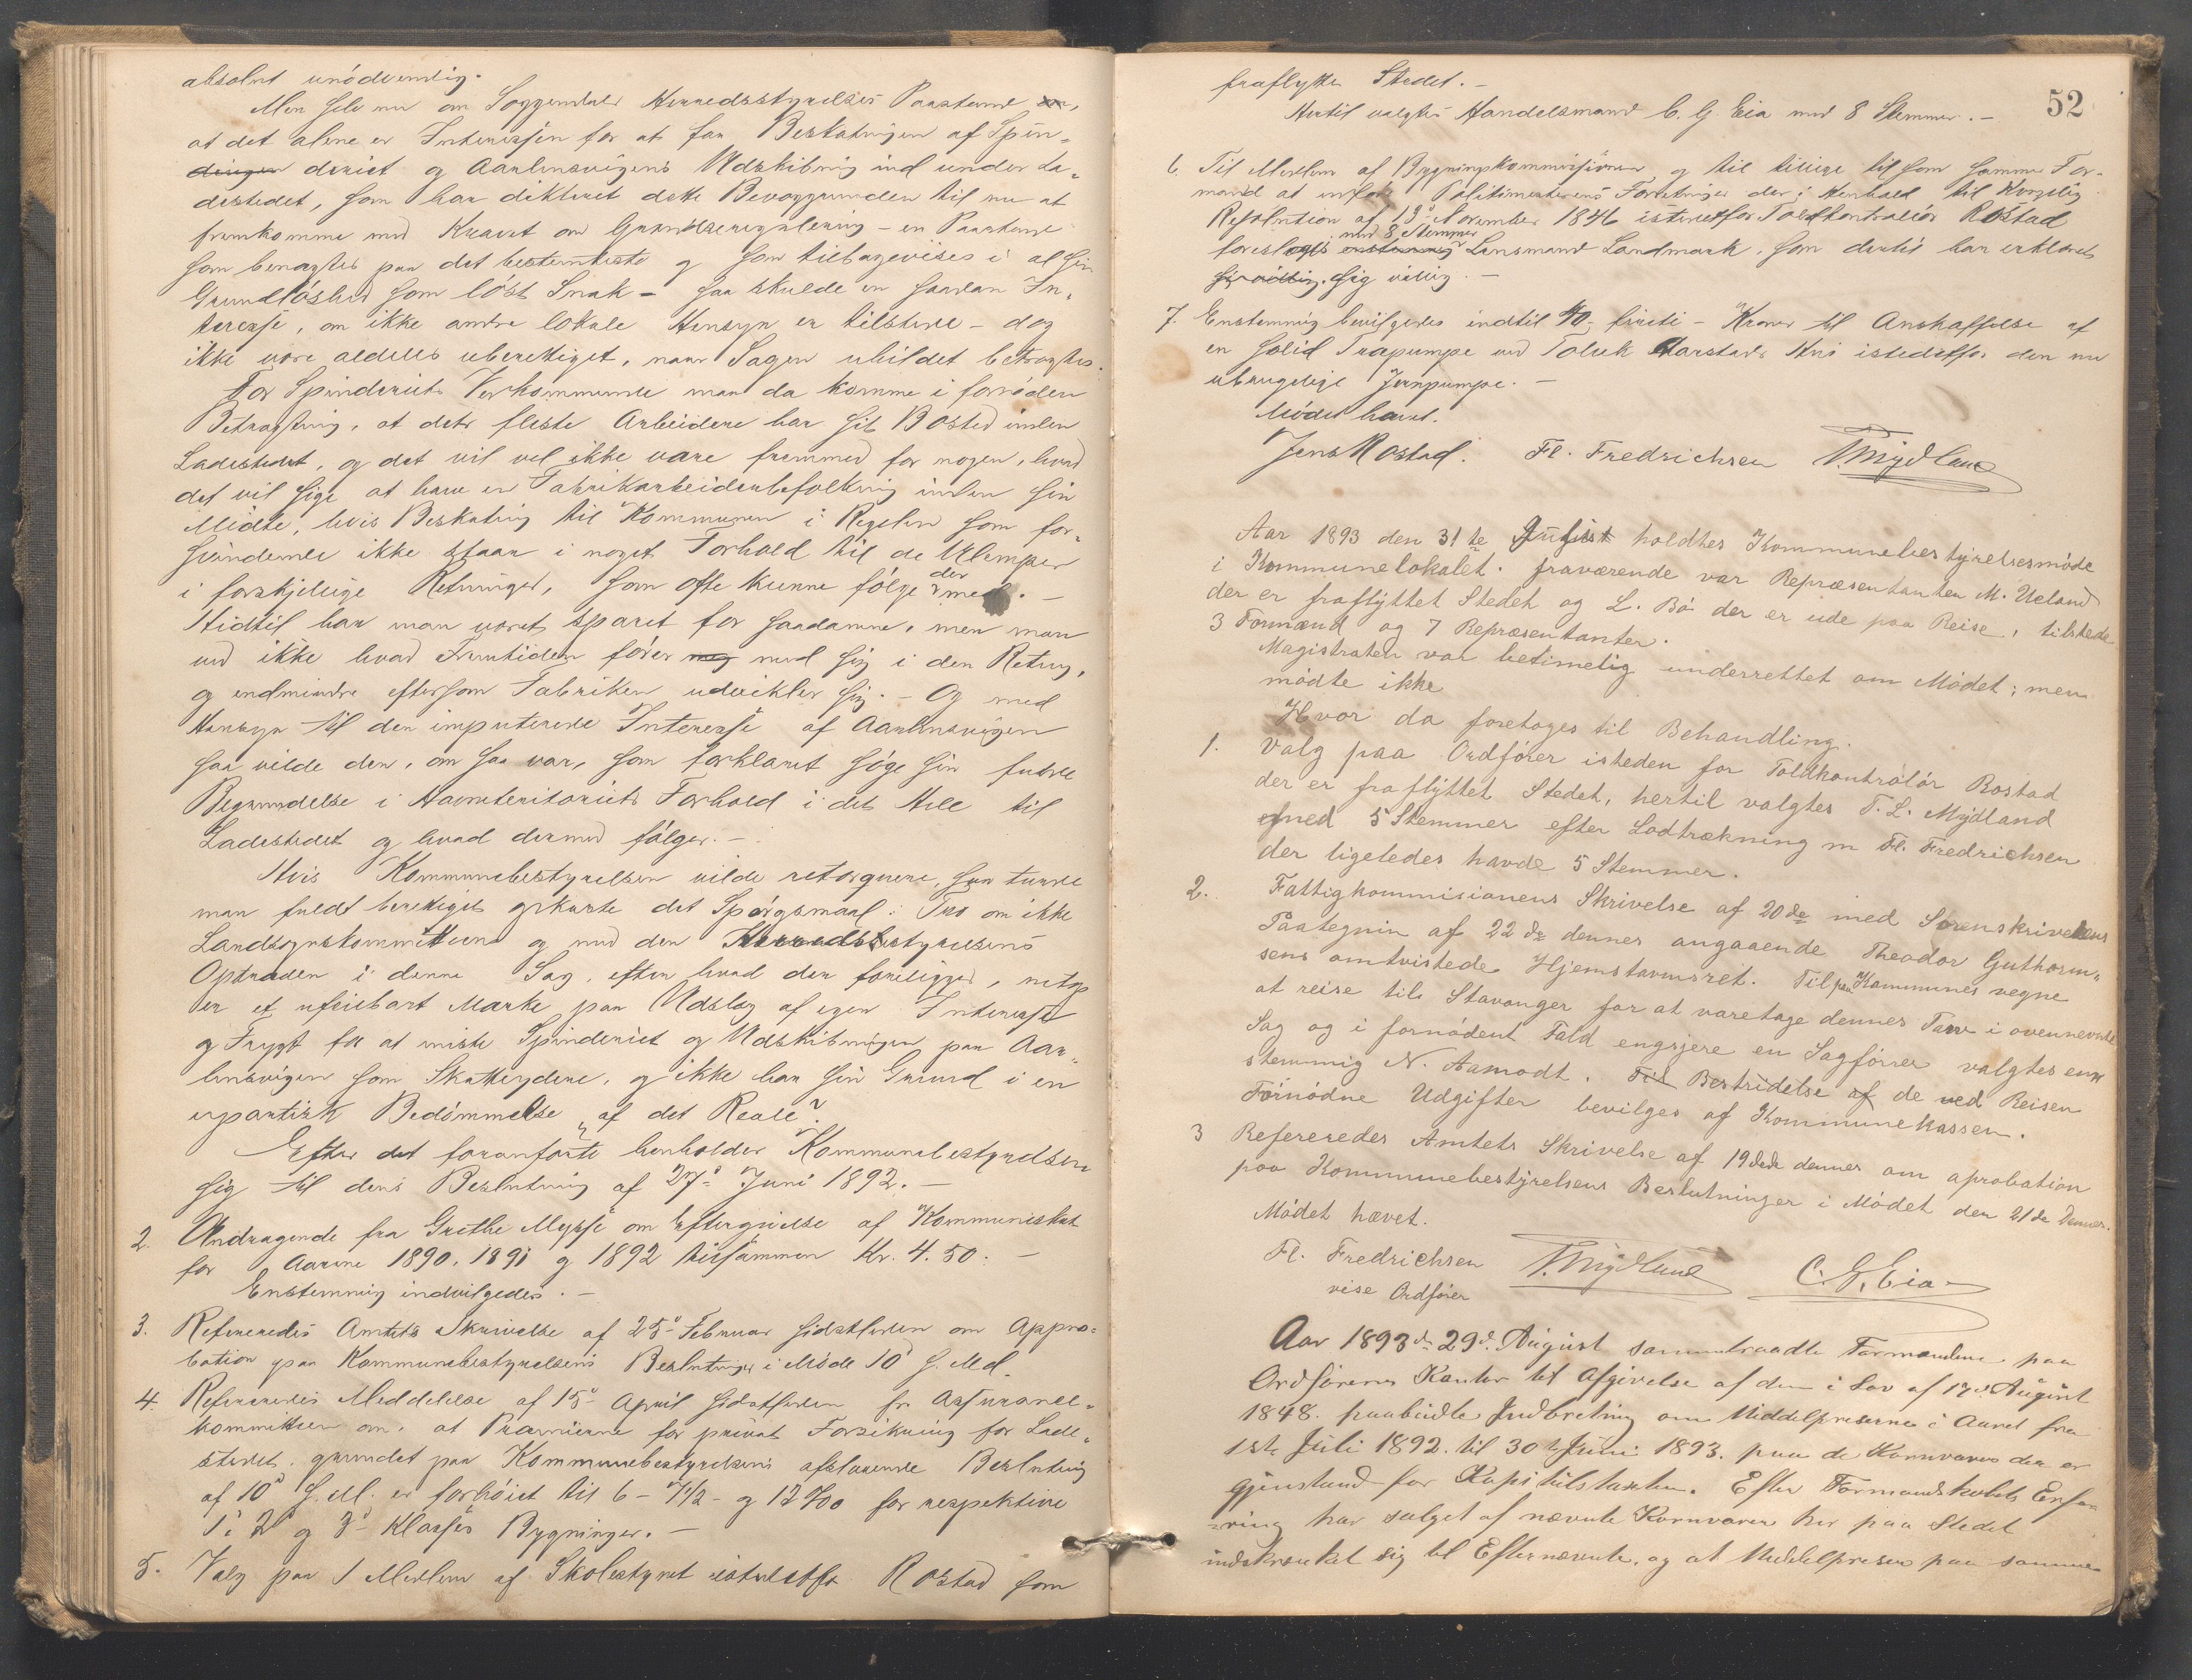 absolut unödvendig.
Men selv nu om Soggendals Herredsstyrelses Paastand
at det alene er Interessen for at faa Beskatningen af Spin-
deriet og Aarlensvigens Udskibning ind under La-
destedet, som har dikteret dette Bevæggrunden til nu at
fremkomme med Kravet om Grændseregulering – en Paastand
som benægtes paa det bestemteste og som tilbagevises i al sin
Grundløshed som löst Snak – saa skulde en saadan In-
teresse, om ikke andre lokale Hensyn er tilstede – dog
ikke være aldeles uberettiget, naar Sagen uhildet betragtes.
For Spinderiets Vedkommende maa da komme i fornøden
Betragtning, at dets fleste Arbeidere har sit Bosted inden
Ladestedet, og det vil vel ikke være fremmed for nogen, hvad
det vil sige at have en Fabrikarbeiderbefolkning inden sin
Midte, hvis Beskatning til Kommunen i Regelen som for-
svindende ikke staar i noget Forhold til de Ulemper
i forskjellige Retninger, som ofte kunne følge der med. –
Hidtil har man været sparet for saadanne, men man
ved ikke hvad Fremtiden fører med sig i den Retning,
og endmindre eftersom Fabriken udvikler sig. – Og med
Hensyn til den imputerede Interesse af Aarlensvigen
saa vilde den, om saa var, som forklaret søge sin fulde
Begrundelse i Havneteritoriets Forhold i det Hele til
Ladestedet og hvad dermed følger. –
Hvis Kommunebestyrelsen vilde retorquere, saa turde
man fuldt berettiget opkaste det Spørgsmaal: Tro om ikke
Landsognskommitteens og med den Herredsbestyrelsens
Optræden i denne Sag, efter hvad der foreligger, netop
er et ufeilbart Mærke paa Udslag af egen Interesse
og Frygt for at miste Spinderiet og Udskibningen paa Aar-
lensvigen som Skatteydere, og ikke har sin Grund i en
upartisk Bedömmelse „af det Reale"?
Efter det foranførte henholder Kommunebestyrelsen
sig til dens Beslutning af 27de Juni 1892. –
2. Andragende fra Grethe Mysse om Eftergivelse af Kommuneskat
for Aarene 1890, 1891 og 1892 tilsammen Kr. 4.50. –
Enstemmig indvilgedes. –
3. Refereredes Amtets Skrivelse af 25d Februar sidstleden om Appro-
bation paa Kommunebestyrelsens Beslutninger i Møde 10d s. Md.
4. Refereredes Meddelelse af 15d April sidstleden fr Assurance-
kommitteen om, at Præmierne for privat Forsikring for Lade-
stedet, grundet paa Kommunebestyrelsens afslaaende Beslutning
af 10d s. M. er forhöiet til 6 – 7 1/2 – og 12 ‰ for respektive
1ste 2d og 3d Klasses Bygninger. –
5. Valg paa 1 Medlem af Skolestyret istedetfor Rostad som
52
fraflytter Stedet. –
Hertil valgtes Handelsmand C. G. Eia med 8 Stemmer. –
6. Til Medlem af Bygningskommissionen og til tillige til som samme For-
mand at Politimesterens Forretninger der i Henhold til Kongelig
Resolution af 13d November 1846 istedetfor Toldkontrollör Rostad
foreslaaes med 8 Stemmer Lensmand Landmark, som dertil har erklæret
sig villig. –
7. Enstemmig bevilgedes indtil 40, firti – Kroner til Anskaffelse af
en solid Træpumpe ved Toluk Aarstads Hus istedetfor den nu
ubrugelige Jernpumpe. –
Mödet hævet.
Jens Rostad. Fl. Fredrichsen T. Mydland
Aar 1893 den 31te August holdtes Kommunebestyrelsesmöde
i Kommunelokalet. fraværende var Repræsentanten M. Ueland
der er fraflyttet Stedet og L. Bö der er ude paa Reise, tilstede
3 Formænd og 7 Repræsentanter.
Magistraten var betimelig underrettet om Mödet; men
mödte ikke
Hvor da foretoges til Behandling.
1. Valg paa Ordförer isteden for Toldkontrolör Rostad
der er fraflyttet Stedet, hertil valgtes T. L. Mydland
med 5 Stemmer efter Lodtrækning m Fl. Fredrichsen
der ligeledes havde 5 Stemmer.
2. Fattigkommisionens Skrivelse af 20de med Sorenskriverens
Paategnin af 22de dennes angaaende Theodor Guthorm-
sens omtvistede Hjemstavnsret. Til paa Kommunes vegne
at reise til Stavanger for at varetage dennes Tarv i ovennevnte
Sag og i fornödent Fald engajere en Sagförer valgtes en-
stemmig N. Aamodt. Til Bestridelse af de ved Reisen
Fornödne Udgifter bevilges af Kommunekassen.
3 Refereredes Amtets Skrivelse af 19de dennes om aprobation
paa Kommunebestyrelsens Beslutninger i Mödet den 21de Dennes.
Mödet hævet.
Fl. Fredrichsen T. Mydland C. G. Eia
vise Ordförer
Aar 1893 dn 29d. August sammentraadte Formændene paa
Ordförerens Kontor til Afgivelse af den i Lov af 17de August
1848. paabudte Indbretning om Middelpriserne i Aaret fra
1ste Juli 1892. til 30te Juni 1893. paa de Kornvarer der er
gjenstand for Kapitelstaxten. Efter Formandskabets Erfa-
ring har salget af nævnte Kornvarer her paa Stedet
indskrænket sig til Efternævnte, og at Middelprisen paa samme